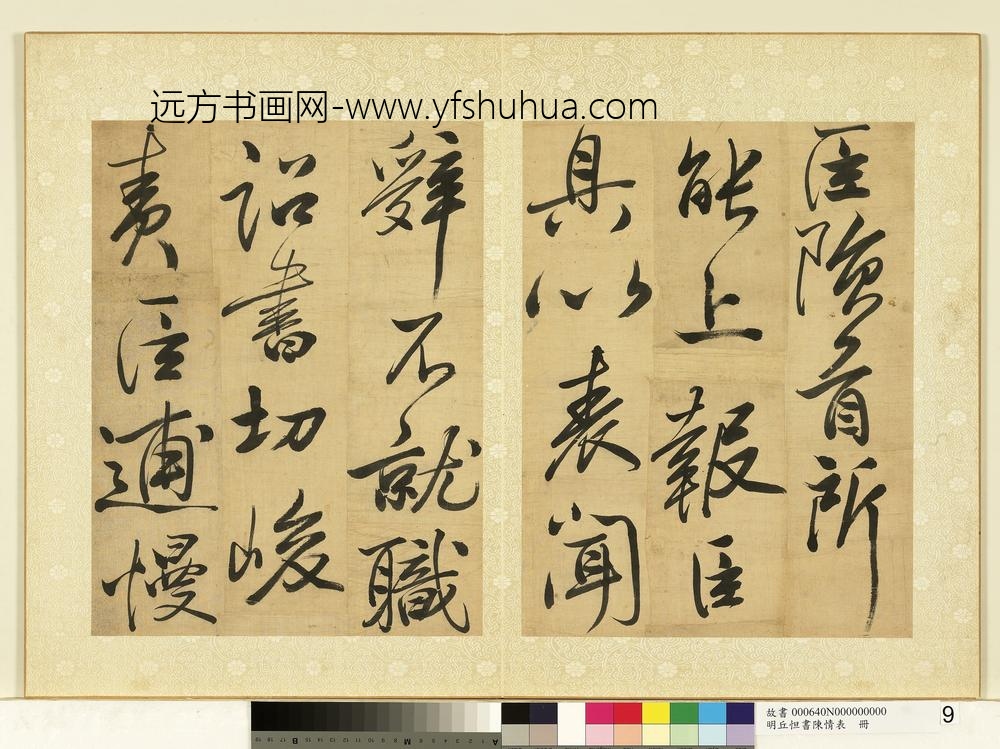 远方书画网-www.yfshuhua.com
臣隕首所
能上報臣
具以表聞
辭不就職
詔書切峻
責臣逋慢
故書 000640N000000000
明丘怛書陳情表 冊
9